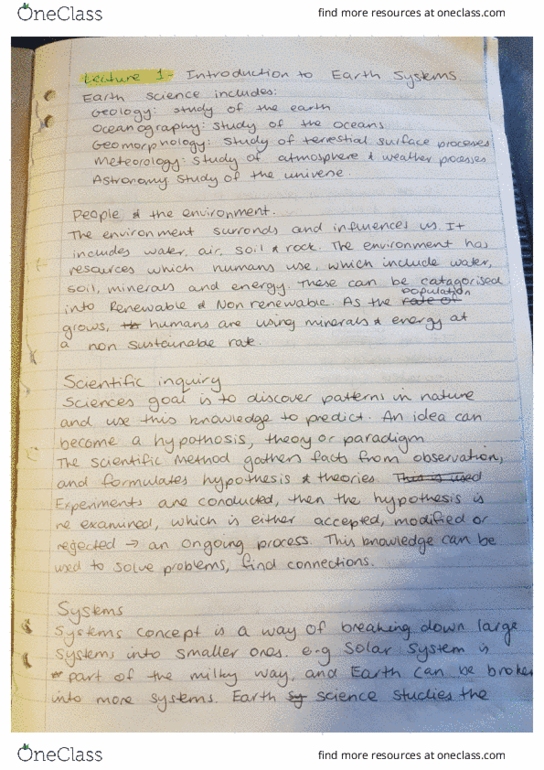 OneClass
find more resources at oneclass.com
Lecture 1- Introduction to Earth Systems
Earth Science includes:
Geology: study of the earth
Oceanography: study of the oceans
Geomorphology: study of terrestial surface processes
Meteorology: study of atmosphere & weather pocesses
Astronomy study of the universe
People & the environment.
The environment surronds and influences us. It
includes water, air, soil & rock. The environment has
resources which humans use, which include water,
soil, minerals and energy. These can be catagorised
into Renewable & Non renewable. As the population
grows, humans are using minerals & energy at
a non sustainable rate.
Scientific inquiry
Sciences goal is to discover patterns in nature
and use this knowledge to predict. An idea can
become a hypothosis, theory or paradigm
The scientific method gathers facts from observation,
and formulates hypothesis & theories. This is used
Experiments are conducted, then the hypothesis is
re examined, which is either accepted, modified or
rejected → an ongoing process. This knowledge can be
used to solve problems, find connections.
Systems
Systems concept is a way of breaking down large
systems into smaller ones. e.g Solar System is
part of the milky way, and Earth can be broken
into more systems. Earth Sy science studies the
OneClass
find more resources at oneclass.com